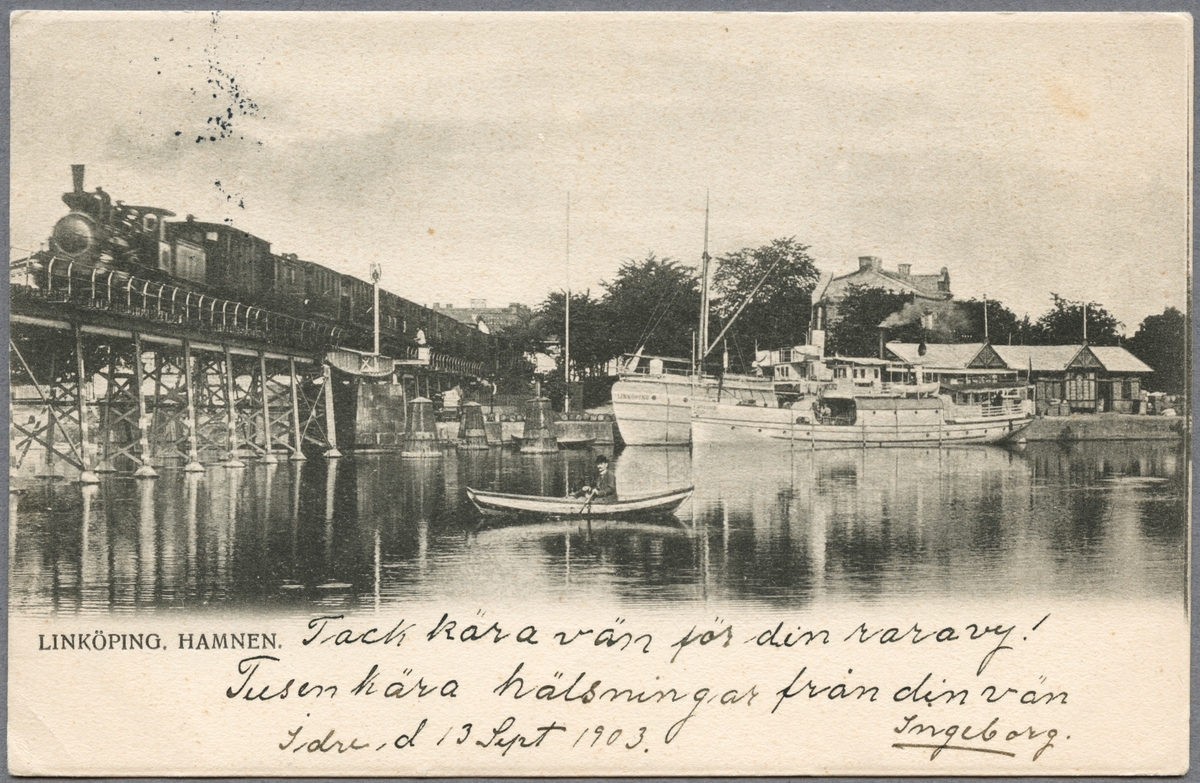 LINKÖPING
LINKÖPING. HAMNEN. Tack kära vän för din rara vy!
Tusen kära hälsningar från din vän
Idre, d 13 Sept 1903. Ingeborg.